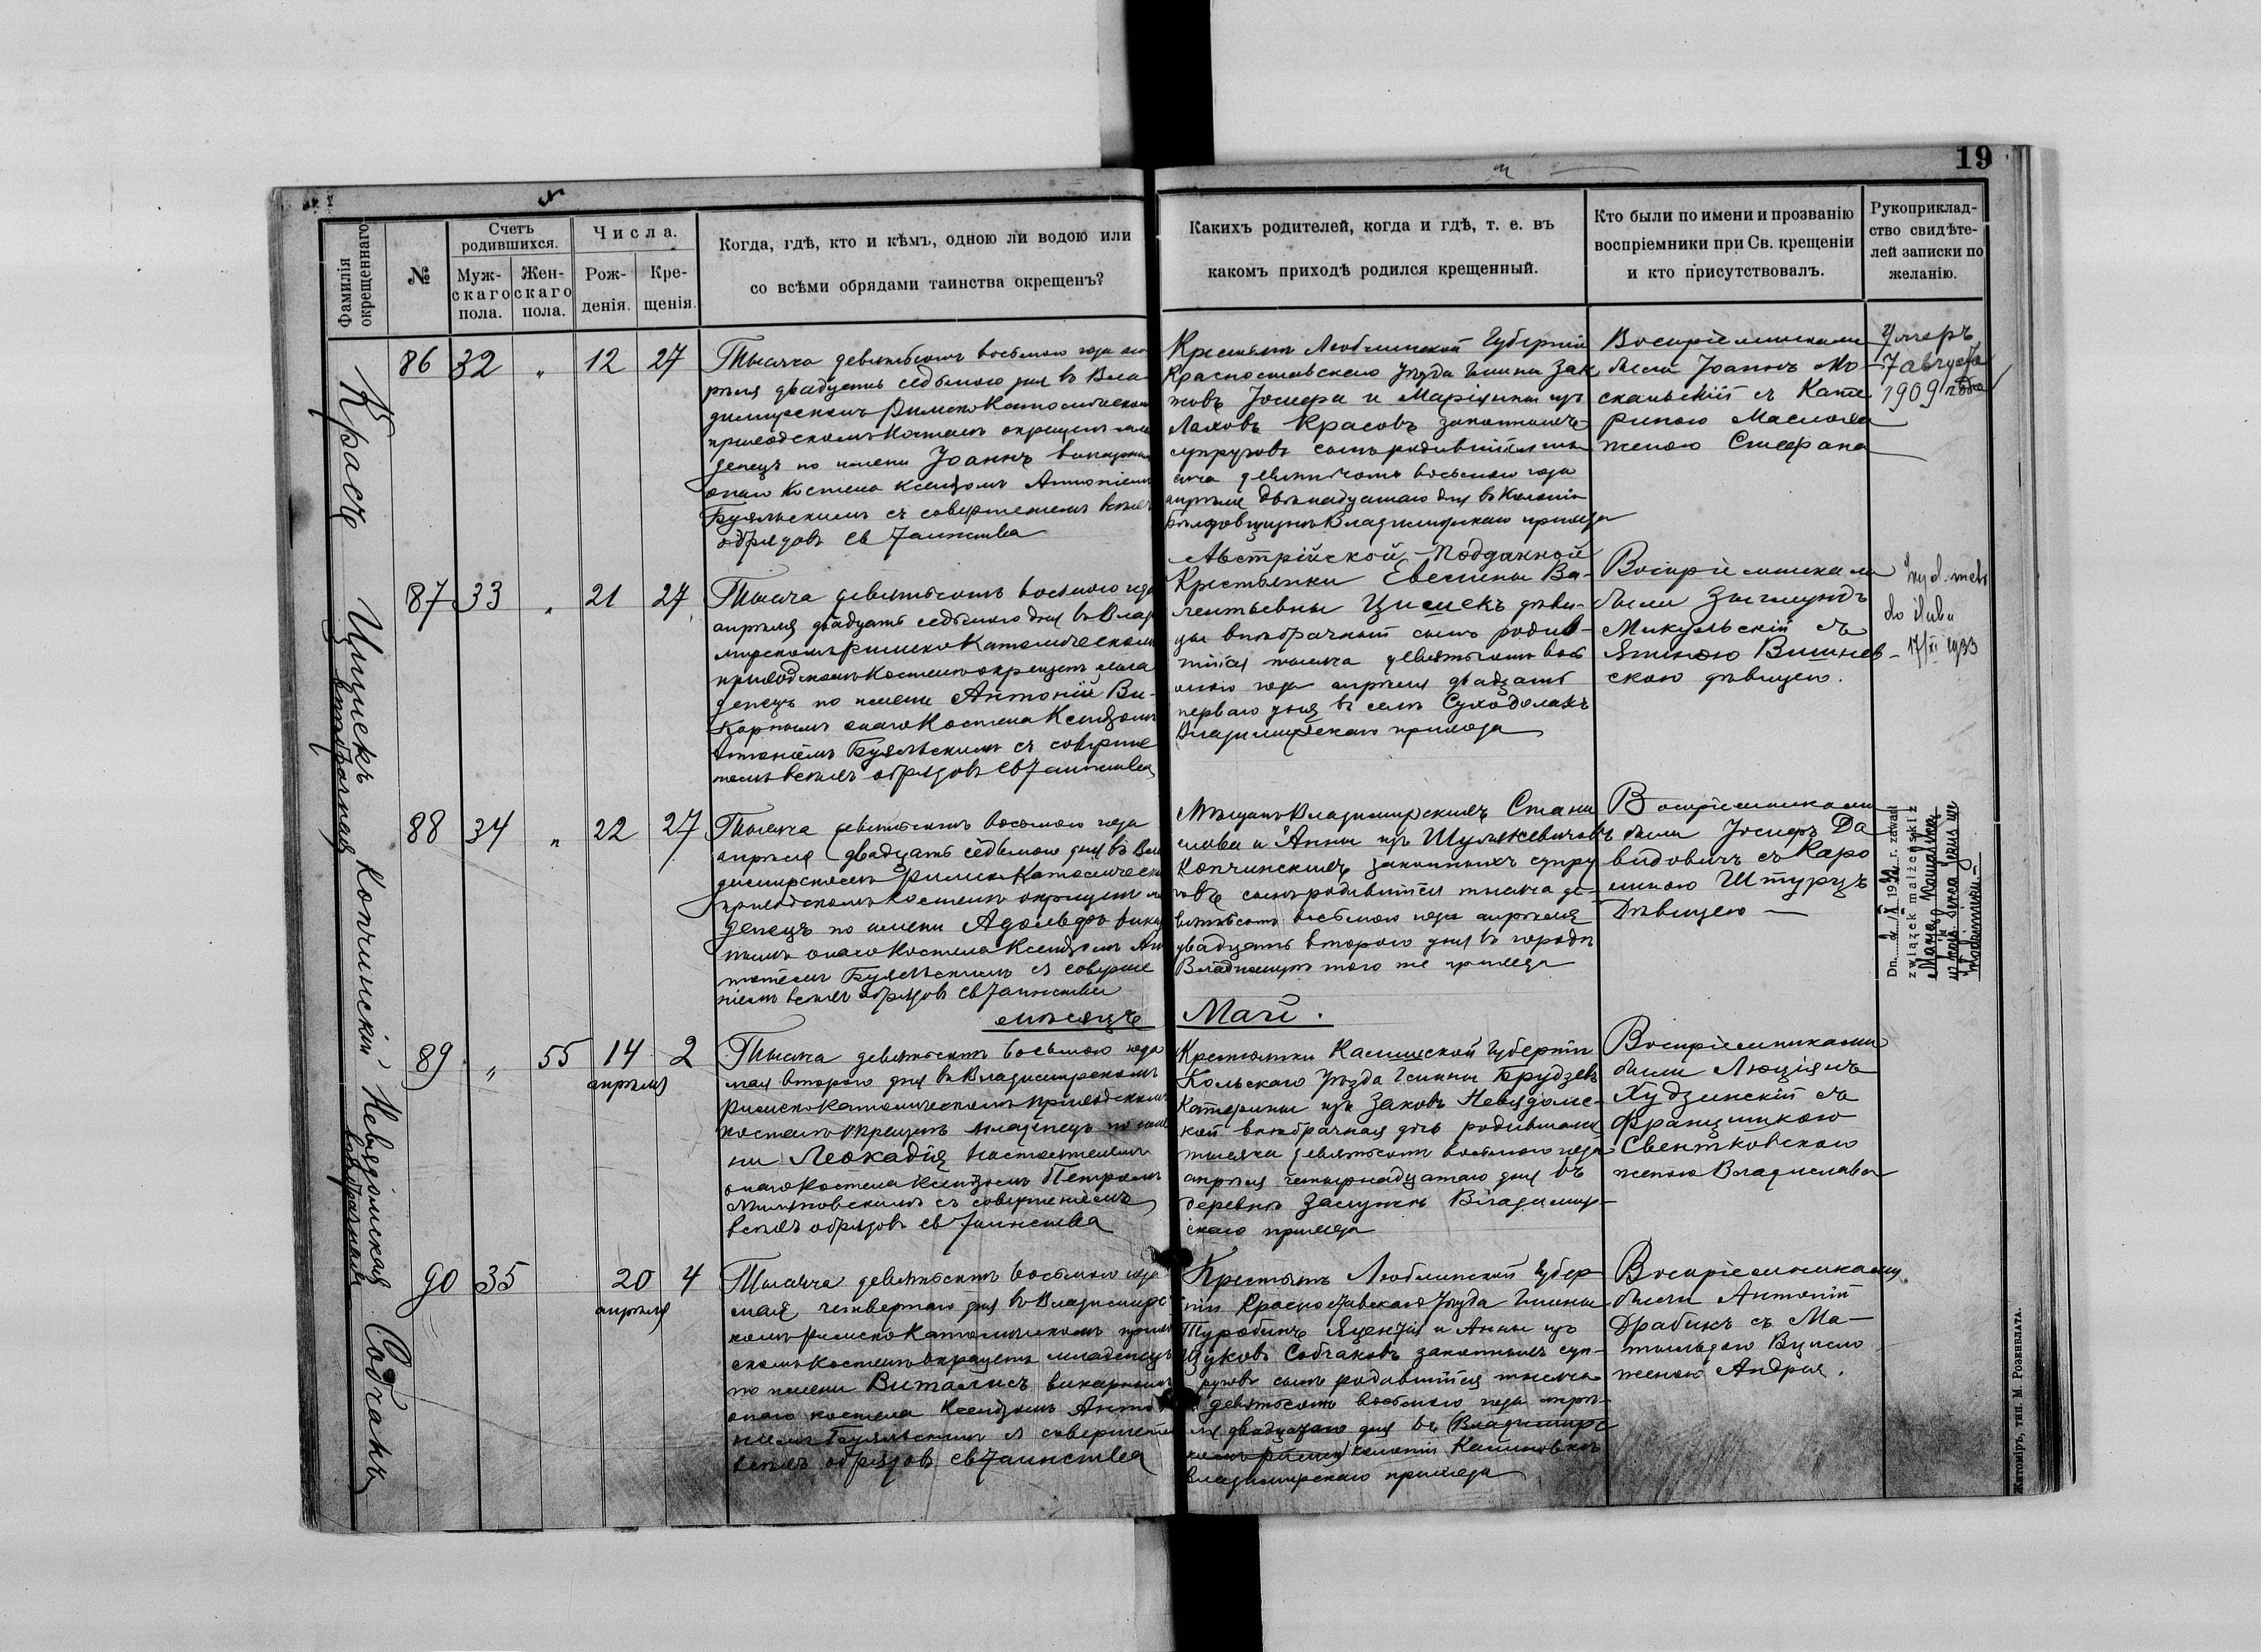 19
Фамилія окрещеннаго
№
Счетъ родившихся.
Мужскаго пола.
Женскаго пола.
Числа.
Рожденія.
Крещенія.
Когда, гдѣ, кто и кѣмъ, одною ли водою или
со всѣми обрядами таинства окрещенъ?
Какихъ родителей, когда и гдѣ, т. е. въ
какомъ приходѣ родился крещенный.
Кто были по имени и прозванію
воспріемники при Св. крещеніи
и кто присутствовалъ.
Рукоприклад-
ство свидѣте-
лей записки по
желанію.
Красъ
86 32 „ 12 27
Тысяча девятьсотъ восьмого года ап
рѣля двадцать седьмого дня въ Вла
димирскомъ Римско Католическом
приходскомъ костелѣ окрещенъ мла
денецъ по имени Іоаннъ викарным
онаго Костела ксендзомъ Антоніем
Буяльскимъ съ совершеніемъ всѣхъ
обрядовъ св Таинства
Крестьянъ Люблинской Губерніи
Красноставскаго уѣзда Гмины Зак
жовъ Іосифа и Маріянны изъ
Лаховъ Красовъ законныхъ
супруговъ сынъ родившійся ты
сяча девятьсотъ восьмого года
апрѣля двѣнадцатаго дня въ Колоніи
Владимирскаго прихода
Воспріемниками
были Іоаннъ Мо
скальскій съ Кате
риною Маслоха
женою Стефана
Умеръ
7 августа
1909 года
Цишекъ
внѣбрачная
87 33 „ 21 27
Тысяча девятьсотъ восьмого года
апрѣля двадцать седьмого дня въ Влади
мирскомъ Римско Католическом
приходскомъ Костелѣ окрещенъ мла
денецъ по имени Антоній Ви-
карнымъ онаго Костела Ксендзомъ
Антоніемъ Буяльскимъ съ соверше
ніемъ всѣхъ обрядовъ св Таинства
Австрійской-Подданной
Крестьянки Евелины Ва-
лентьевны Цишекъ дѣви-
цы внѣбрачный сынъ родив-
шійся тысяча девятьсотъ вось
мого года апрѣля двадцать
перваго дня въ селѣ Суходолахъ
Владимирскаго прихода
Воспріемниками
были Зыгмундъ
Микульскій съ
Яниною Вишнев-
скою дѣвицею.
Wyd. metr.
do ślubu
17/XI 1933
Копчинскій
88 34 „ 22 27
Тысяча девятьсотъ восьмого года
апрѣля двадцать седьмого дня въ Вла
димирскомъ Римско Католическом
приходскомъ костелѣ окрещенъ мла
денецъ по имени Адольфъ викар
нымъ онаго Костела Ксендзомъ Ан
тоніемъ Буяльскимъ съ соверше
ніемъ всѣхъ обрядовъ св Таинства
Мѣщанъ Владимирскихъ Стани
слава и Анны изъ Шулякевичовъ
Копчинскихъ законныхъ супру
говъ сынъ родившійся тысяча де-
вятьсотъ восьмого года апрѣля
двадцать второго дня въ городѣ
Владимирѣ того же прихода
Воспріемниками
были Іосифъ Да
видовичъ съ Каро
линою Штурцъ
Дѣвицею
związek małżeński z
Мѣсяцъ Май.
Невядомская
внѣбрачная
89 „ 55 14 апрѣля 2
Тысяча девятьсотъ восьмого года
мая второго дня въ Владимирскомъ
Римско Католическомъ приходскомъ
костелѣ окрещенъ младенецъ по име
ни Леокадія настоятелемъ
онаго Костела Ксендзомъ Петромъ
Милязовскимъ съ совершеніемъ
всѣхъ обрядовъ св Таинства
Крестьянки Калишской Губерніи
Кольскаго Уѣзда Гмины Брудзевъ
Катерины изъ Заковъ Невядомс-
кой внѣбрачная дочь родившаяся
тысяча девятьсотъ восьмого года
апрѣля четырнадцатаго дня въ
деревнѣ Владимир-
скаго прихода
Воспріемниками
были Люціянъ
Худзинскій съ
Францишкою
Свентковскою
женою Владислава
Собчакъ
90 35 20 апрѣля 4
Тысяча девятьсотъ восьмого года
мая четвертаго дня въ Владимирс
комъ Римско Католическомъ приход
скомъ Костелѣ окрещенъ младенецъ
по имени Виталисъ викарнымъ
онаго костела Ксендзомъ Анто
ніемъ Буяльскимъ съ совершеніем
всѣхъ обрядовъ св Таинства
Крестьянъ Люблинской Губер
ніи Красноставскаго Уѣзда Гмины
Туробинъ Яцентія и Анны изъ
Щуковъ Собчаковъ законныхъ суп-
руговъ сынъ родившійся тысяча
девятьсотъ восьмого года апрѣ-
ля двадцатаго дня въ (Владимирс
комъ римск) колоніи Калиновкѣ
Владимирскаго прихода
Воспріемниками
были Антоній
Драбикъ съ Ма-
тыльдою
женою Андрея.
Житоміръ, тип. М. Розенблата.